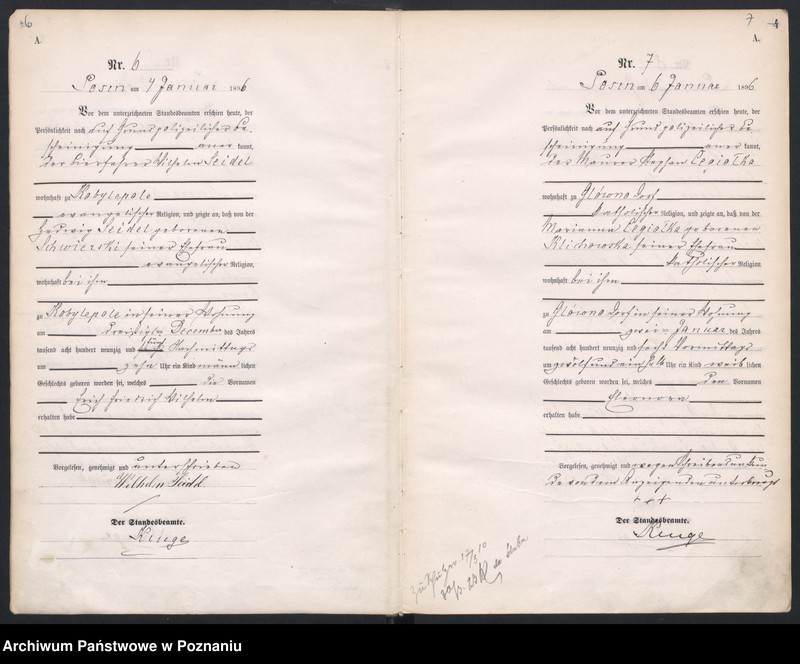 6
A.
Nr. 6
Posen am 4 Januar 1896
Vor dem unterzeichneten Standesbeamten erschien heute, der
Persönlichkeit nach auf Grund polizeilicher Be-
scheinigung aner kannt,
der Bierfahrer Wilhelm Seidel
wohnhaft zu Kobylepole
evangelischer Religion, und zeigte an, daß von der
Hedwig Seidel geborenen
Schwierski seiner Ehefrau
evangelischer Religion,
wohnhaft bei ihm
zu Kobylepole in seiner Wohnung
am December des Jahres
tausend acht hundert neunzig und fünf Nachmittags
um zehn Uhr ein Kind männ lichen
Geschlechts geboren worden sei, welches die Vornamen
Erich Friedrich Wilhelm
erhalten habe
Vorgelesen, genehmigt und unterschrieben
Wilhelm Seidel
Der Standesbeamte.
Kluge
7
4
A.
Nr. 7
Posen am 6 Januar 1896
Vor dem unterzeichneten Standesbeamten erschien heute, der
Persönlichkeit nach auf Grund polizeilicher Be
scheinigung aner kannt,
der Maurer Stephan Cegiałka
wohnhaft zu Glówno Dorf
katholischer Religion, und zeigte an, daß von der
Marianna Cegiałka geborenen
Klichowska seiner Ehefrau
katholischer Religion
wohnhaft bei ihm
zu Glówno Dorf in seiner Wohnung
am zwei Januar des Jahres
tausend acht hundert neunzig und sechs Vormittags
um zwölf und ein halb Uhr ein Kind weib lichen
Geschlechts geboren worden sei, welches den Vornamen
Eleonora
erhalten habe
Vorgelesen, genehmigt und wegen Schreibensunkun
de von dem Anzeigenden unterkreuzt
+++
Der Standesbeamte.
Kluge
17/3 10
Archiwum Państwowe w Poznaniu